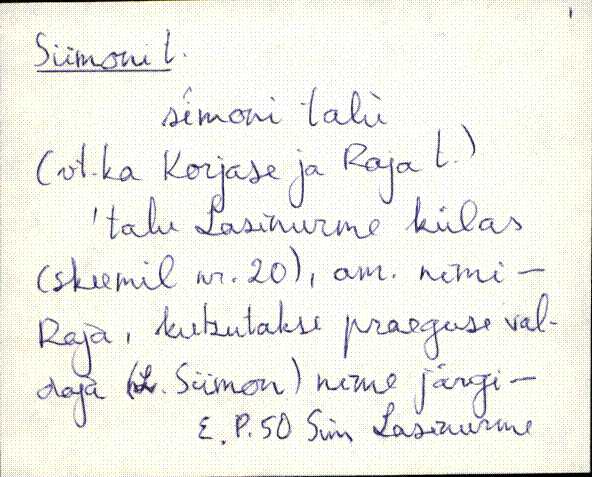 Siimoni t.
sémoni talù
(vt.ka Korjase ja Raja t.)
'talu Lasinurme külas
(skeemil nr. 20), am. nimi -
Raja, kutsutakse praeguse val-
daja (L. Siimon) nime järgi -
E. P. 50 Sim Lasinurme